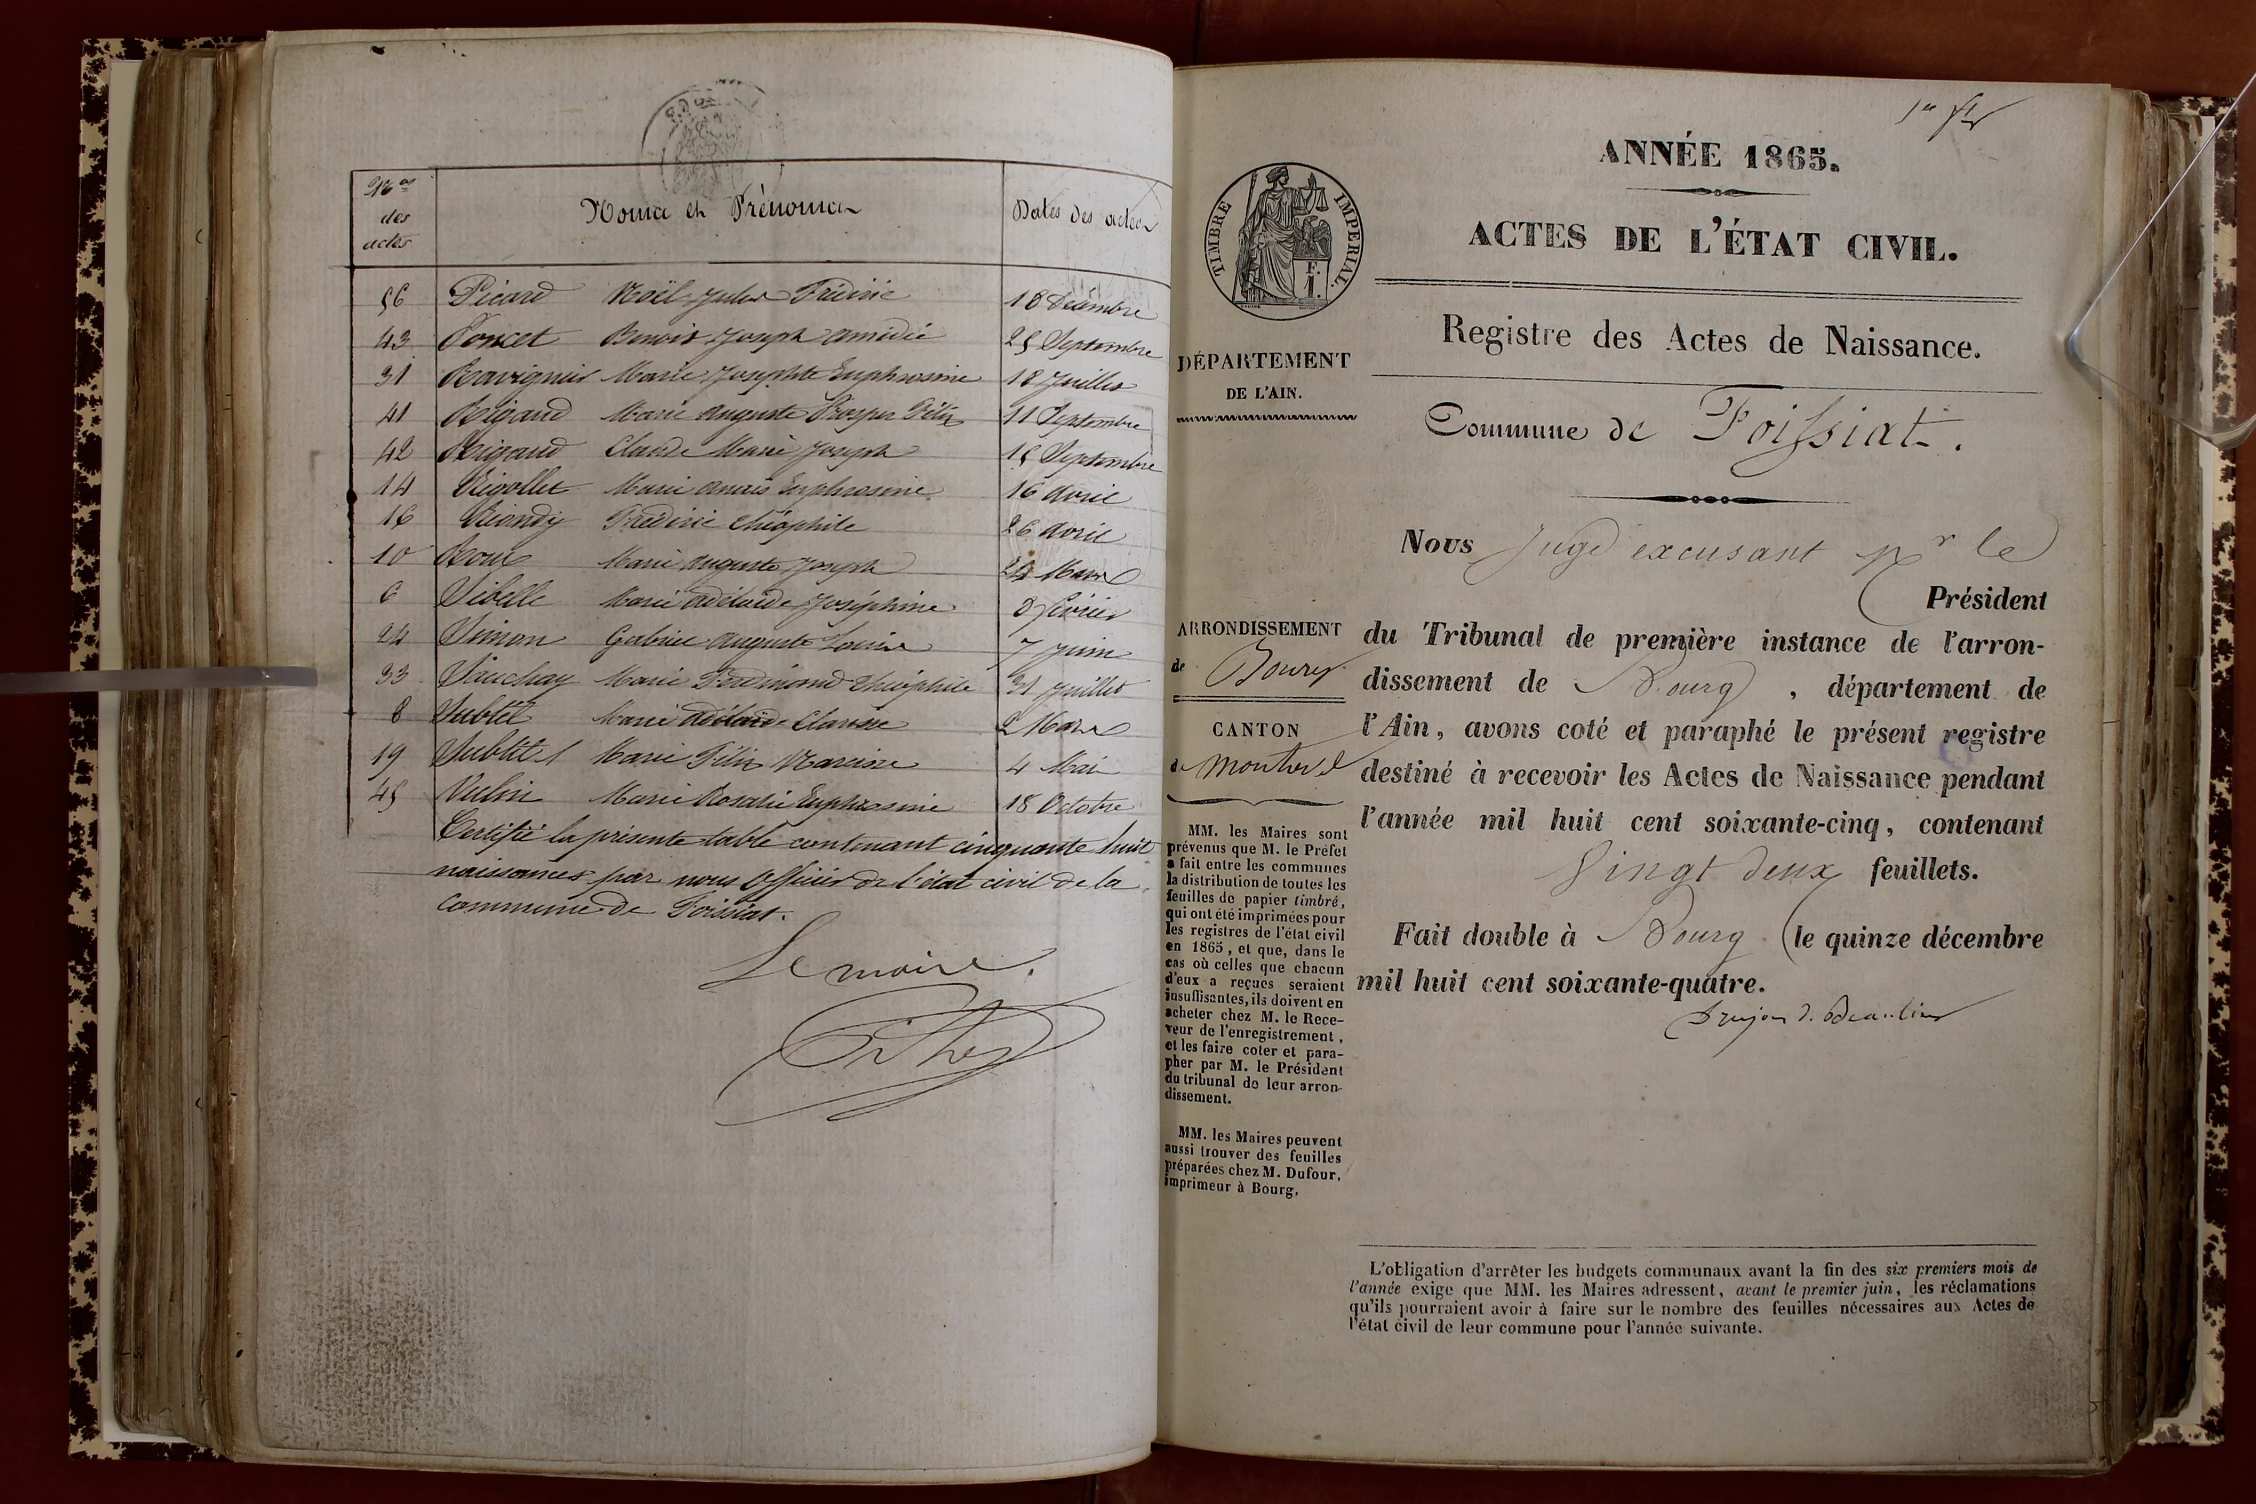 Nos des actes
Noms et Prénoms
Dates des actes
56 Picard Noël Jules Frédéric 18 Décembre
43 Poncet Benoit Joseph Amédée 25 Septembre
31 Ravignier Marie Josephte Euphrosine 18 Juillet
41 Rigaud Marie Auguste Prosper Félix 11 Septembre
42 Rigaud Claude Marie Joseph 15 Septembre
14 Rigollet Marie Anaïs Euphrosine 16 Avril
16 Riondy Frédéric Théophile 26 Avril
10 Roux Marie Auguste Joseph 24 Mars
6 Sibelle Marie Adélaïde Joséphine 8 Février
24 Simon Gabriel Auguste Louis 7 Juin
33 Marie Ferdinand Théophile 31 Juillet
8 Sublet Marie Adélaïde Clarisse 2 Mars
19 Sublet Marie Félix Narcisse 4 Mai
45 Vulin Marie Rosalie Euphrosine 18 Octobre
Certifié la présente table contenant cinquante huit
naissances par nous Officier de l'état civil de la
commune de Foissiat.
Le maire.
1er
ANNÉE 1865.
ACTES DE L'ÉTAT CIVIL.
TIMBRE IMPERIAL.
F.
1.
Registre des Actes de Naissance.
DÉPARTEMENT
DE L'AIN.
Commune de Foissiat.
Nous Juge excusant Mr le
Président
du Tribunal de première instance de l'arron-
dissement de Bourg, département de
l'Ain, avons coté et paraphé le présent registre
destiné à recevoir les Actes de Naissance pendant
l'année mil huit cent soixante-cinq, contenant
Vingt deux feuillets.
Fait double à Bourg le quinze décembre
mil huit cent soixante-quatre.
ARRONDISSEMENT
de Bourg
CANTON
de Montrevel
MM. les Maires sont
prévenus que M. le Préfet
a fait entre les communes
la distribution de toutes les
feuilles de papier timbré,
qui ont été imprimées pour
les registres de l'état civil
en 1865, et que, dans le
cas où celles que chacun
d'eux a reçues seraient
insuffisantes, ils doivent en
acheter chez M. le Rece-
veur de l'enregistrement,
et les faire coter et para-
pher par M. le Président
du tribunal de leur arron-
dissement.
MM. les Maires peuvent
aussi trouver des feuilles
préparées chez M. Dufour,
imprimeur à Bourg.
L'obligation d'arrêter les budgets communaux avant la fin des six premiers mois de
l'année exige que MM. les Maires adressent, avant le premier juin, les réclamations
qu'ils pourraient avoir à faire sur le nombre des feuilles nécessaires aux Actes de
l'état civil de leur commune pour l'année suivante.